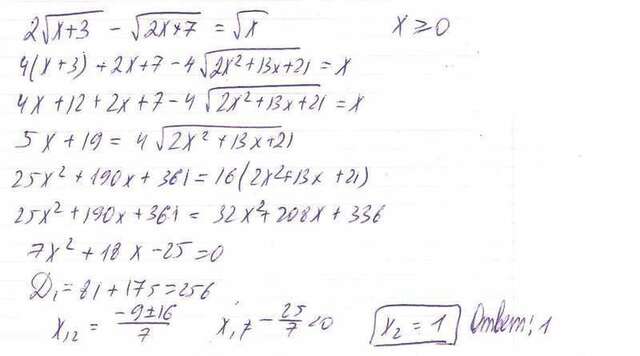 2√(x+3) - √(2x+7) = √x x ≥ 0
4(x+3) + 2x+7 - 4√(2x²+13x+21) = x
4x+12+2x+7-4√(2x²+13x+21) = x
5x+19 = 4√(2x²+13x+21)
25x²+190x+361 = 16(2x²+13x+21)
25x²+190x+361 = 32x²+208x+336
7x²+18x-25=0
D₁=81+175=256
x₁₂ = (-9±16)/7 x₁ - 25/7 <0 x₂ = 1 Ответ: 1